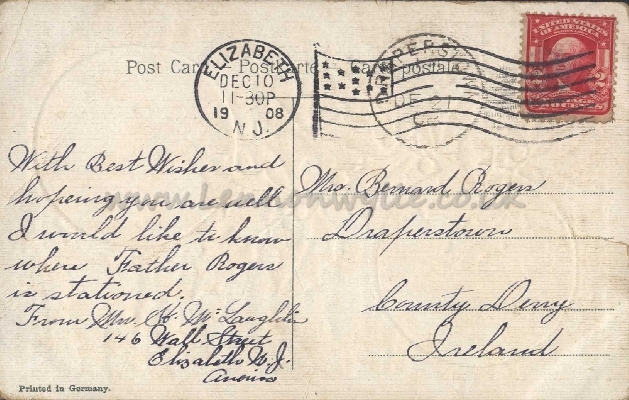 Post Card Postkarte Carte postale
ELIZABETH
DEC 10
11-30P
1908
N.J.
DRAPERSTOWN
DE 21
UNITED STATES OF AMERICA
With Best Wishes and
hopeing you are well
I would like to know
where Father Rogers
is stationed.
From Mrs H. McLaughlin
146 Wall Street
Elizabeth N.J.
America
Mrs. Bernard Rogers
Draperstown
County Derry
Ireland
Printed in Germany.